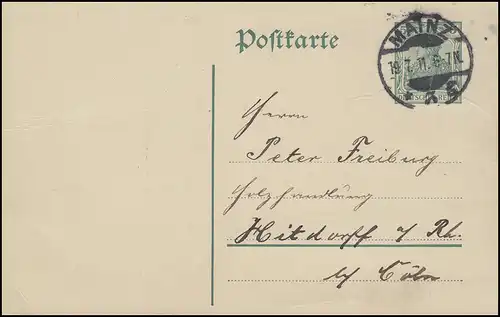 Postkarte
MAINZ
19.7.11.6-7N.
DEUTSCHES REICH
Herrn
Peter Freiburg
Holzhandlung
Hitdorff a/ Rh.
b/ Cöln